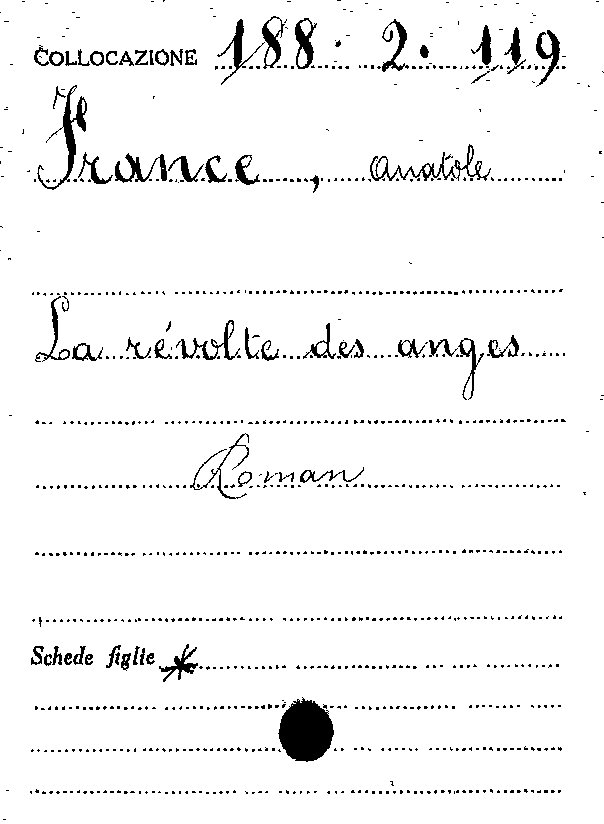 COLLOCAZIONE 188. 2. 119
France, Anatole
La révolte des anges
Roman
Schede figlie *